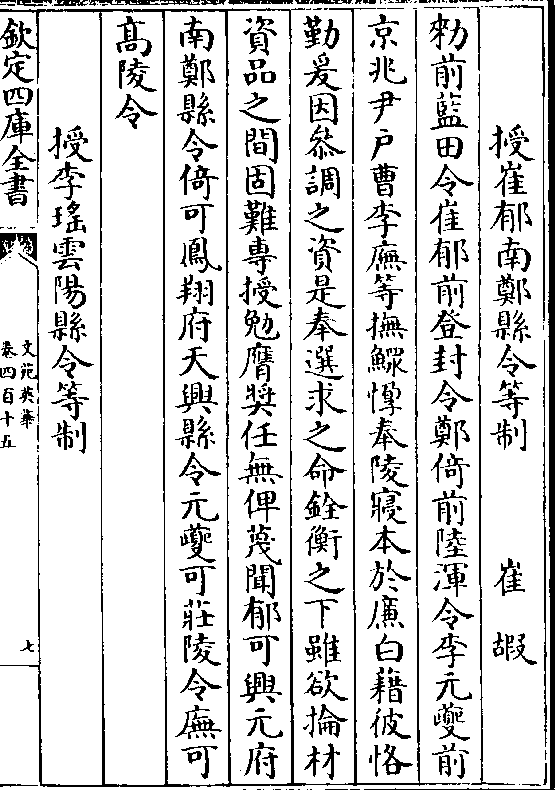 授崔郁南鄭縣令等制　崔嘏
勑前藍田令崔郁前登封令鄭倚前陸渾令李元夔前
京兆尹戶曹李廡等撫鰥惸奉陵寢本於廉白藉彼恪
勤爰因叅調之資是奉選求之命銓衡之下雖欲掄材
資品之間固難專授勉膺奬任無俾蔑聞郁可興元府
南鄭縣令倚可鳳翔府天興縣令元夔可莊陵令廡可
髙陵令
授李瑤雲陽縣令等制
欽定四庫全書
文苑英華
卷四百十五
七